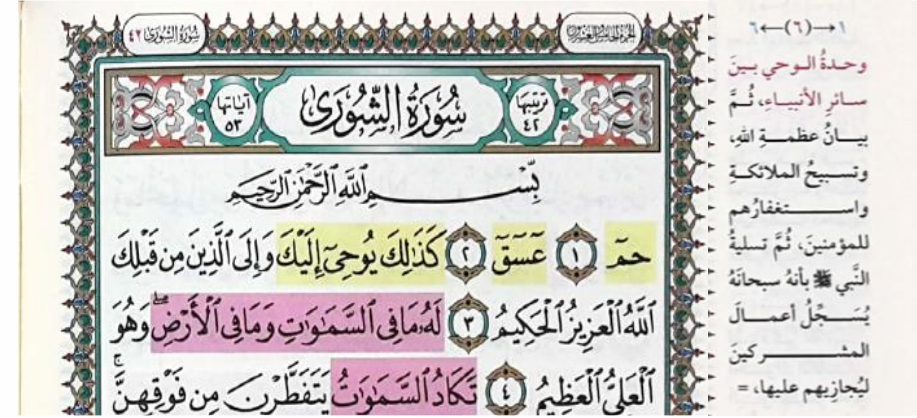 سُورَةُ الشُّورَىٰ ٤٢
الجزء الخامس والعشرون
ترتيبها ٤٢
سُورَةُ الشُّورَىٰ
آياتها ٥٣
بِسْمِ ٱللَّهِ ٱلرَّحْمَٰنِ ٱلرَّحِيمِ
حمٓ ١ عٓسٓقٓ ٢ كَذَٰلِكَ يُوحِىٓ إِلَيْكَ وَإِلَى ٱلَّذِينَ مِن قَبْلِكَ
ٱللَّهُ ٱلْعَزِيزُ ٱلْحَكِيمُ ٣ لَهُۥ مَا فِى ٱلسَّمَٰوَٰتِ وَمَا فِى ٱلْأَرْضِ ۖ وَهُوَ
ٱلْعَلِىُّ ٱلْعَظِيمُ ٤ تَكَادُ ٱلسَّمَٰوَٰتُ يَتَفَطَّرْنَ مِن فَوْقِهِنَّ ۚ
١→(٦)→٦
وحدةُ الوحي بينَ
سائرِ الأنبياءِ، ثُمَّ
بيانُ عظمةِ اللهِ،
وتسبيحُ الملائكةِ
واستغفارُهم
للمؤمنينَ، ثُمَّ تسليةُ
النَّبي ﷺ بأنهُ سبحانَهُ
يُسَجِّلُ أعمالَ
المشركينَ
ليُجازِيهم عليها، =